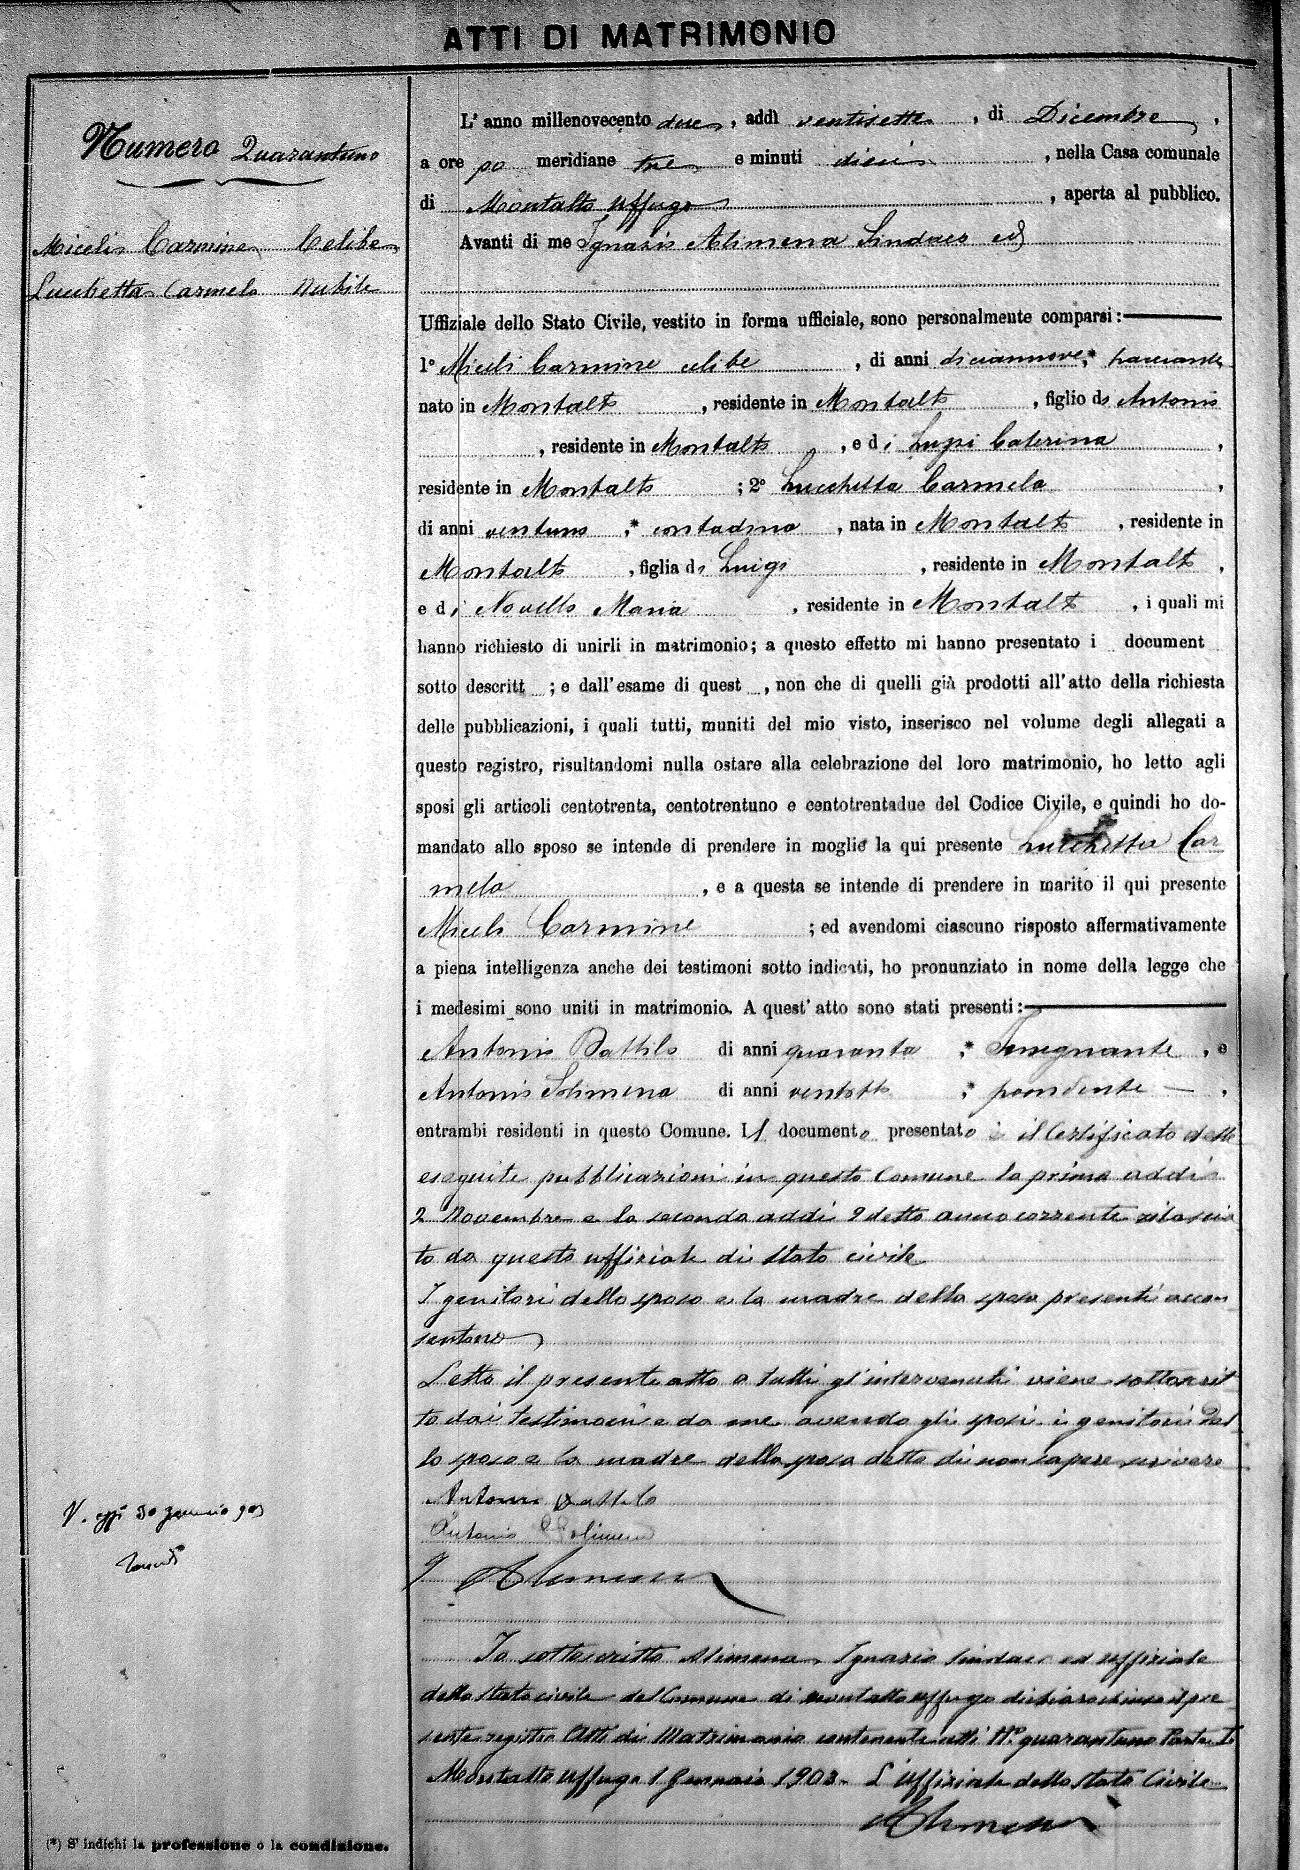 ATTI DI MATRIMONIO
Numero Quarantuno
Miceli Carmine Celibe
Lucchetta Carmela Nubile
L'anno millenovecento due, addì ventisette, di Dicembre,
a ore po meridiane tre e minuti dieci, nella Casa comunale
di Montalto Uffugo, aperta al pubblico.
Avanti di me Ignazio Alimena Sindaco ed
Uffiziale dello Stato Civile, vestito in forma ufficiale, sono personalmente comparsi:
1º Miceli Carmine celibe, di anni diciannove,*
nato in Montalto, residente in Montalto, figlio di Antonio
, residente in Montalto, e di Lupi Caterina,
residente in Montalto; 2º Lucchetta Carmela,
di anni ventuno,* contadina, nata in Montalto, residente in
Montalto, figlia di Luigi, residente in Montalto,
e di Novello Maria, residente in Montalto, i quali mi
hanno richiesto di unirli in matrimonio; a questo effetto mi hanno presentato i document
sotto descritt ; e dall'esame di quest , non che di quelli già prodotti all'atto della richiesta
delle pubblicazioni, i quali tutti, muniti del mio visto, inserisco nel volume degli allegati a
questo registro, risultandomi nulla ostare alla celebrazione del loro matrimonio, ho letto agli
sposi gli articoli centotrenta, centotrentuno e centotrentadue del Codice Civile, e quindi ho do-
mandato allo sposo se intende di prendere in moglie la qui presente Lucchetta Car
mela, e a questa se intende di prendere in marito il qui presente
Miceli Carmine; ed avendomi ciascuno risposto affermativamente
a piena intelligenza anche dei testimoni sotto indicati, ho pronunziato in nome della legge che
i medesimi sono uniti in matrimonio. A quest'atto sono stati presenti:
Antonio Dattilo di anni quaranta,* Insegnante, e
Antonio Solimena di anni ventotto,* possidente,
entrambi residenti in questo Comune. Il documento presentato è il Certificato delle
eseguite pubblicazioni in questo Comune la prima addì
2 Novembre e la seconda addì 9 detto anno corrente rilascia
to da questo uffiziale di stato civile
I genitori dello sposo e la madre della sposa presenti accon
sentono
Letto il presente atto a tutti gl'intervenuti viene sottoscrit
to dai testimoni e da me avendo gli sposi i genitori del
lo sposo e la madre della sposa detto di non sapere scrivere
Antonio Dattilo
Antonio Solimena
I Alimena
V. oggi 30 Gennaio 903
Io sottoscritto Alimena Ignazio Sindaco ed uffiziale
dello stato civile del Comune di Montalto Uffugo dichiaro chiuso il pre
sente registro Atti di Matrimonio contenente atti Nº quarantuno Parte I
Montalto Uffugo 1 Gennaio 1903. L'Uffiziale dello Stato Civile
Alimena
(*) S'indichi la professione o la condizione.